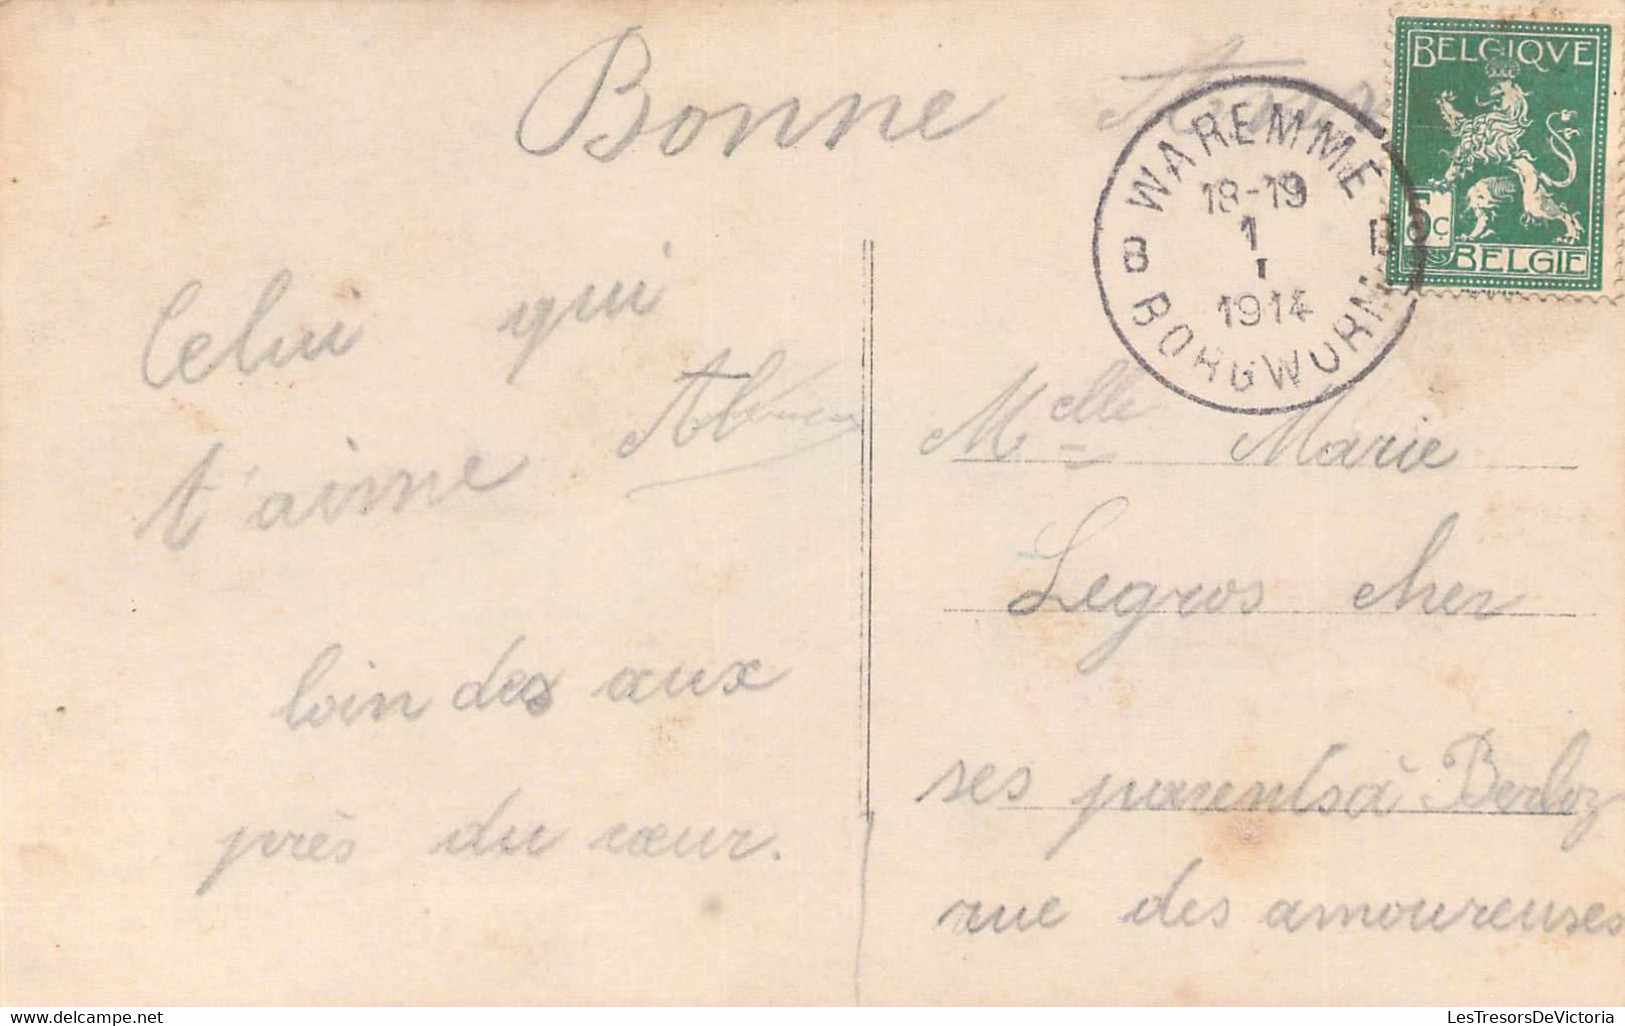 Bonne
BELGIQVE
5c
BELGIE
WAREMME
18-19
1
I
1914
B B
BORGWORM
Celui qui
t'aime
loin des aux
près du cœur.
Melle Marie
Legros chez
ses parents à Berloz
rue des amoureuses
LesTresorsDeVictoria